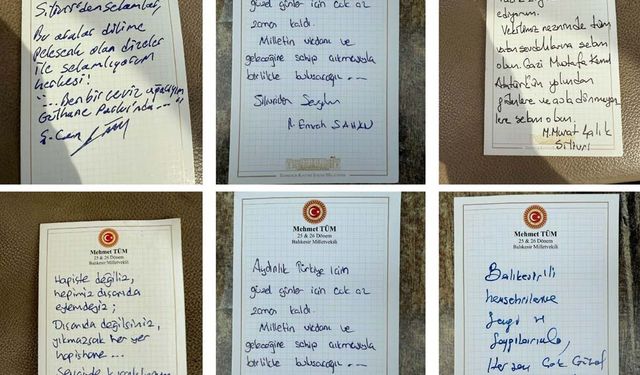 Silivri'den selamlar,
Bu aralar dilime
pelesenk olan dizeler
ile selamlıyorum
herkesi!
"... Ben bir ceviz ağacıyım
Gülhane Parkı'nda ..."
güzel günler için çok az
zaman kaldı.
Milletin vicdanı ve
geleceğine sahip çıkmasıyla
birlikte buluşacağız ...
Silivriden Sevgiler
R. Emrah ŞAHAN
ediyorum.
nezninde tüm
vatan sevdalılarına selam
olsun. Gazi Mustafa Kemal
Atatürk'ün yolundan
gidenlere ve asla dönmeyen
lere selam olsun.
M. Murat Çalık
Silivri
Mehmet TÜM
25 & 26 Dönem
Balıkesir Milletvekili
Hapiste değiliz,
hepimiz dışarıda
eylemdeyiz;
Dışarıda değilsiniz,
yıkmazsak her yer
hapishane ...
Mehmet TÜM
25 & 26 Dönem
Balıkesir Milletvekili
Aydınlık Türkiye için
güzel günler için çok az
zaman kaldı.
Milletin vicdanı ve
geleceğine sahip çıkmasıyla
birlikte buluşacağız ...
Mehmet TÜM
25 & 26 Dönem
Balıkesir Milletvekili
Balıkesirli
hemşehrilerime
sevgi ve
saygılarımla,
Her şey Çok Güzel